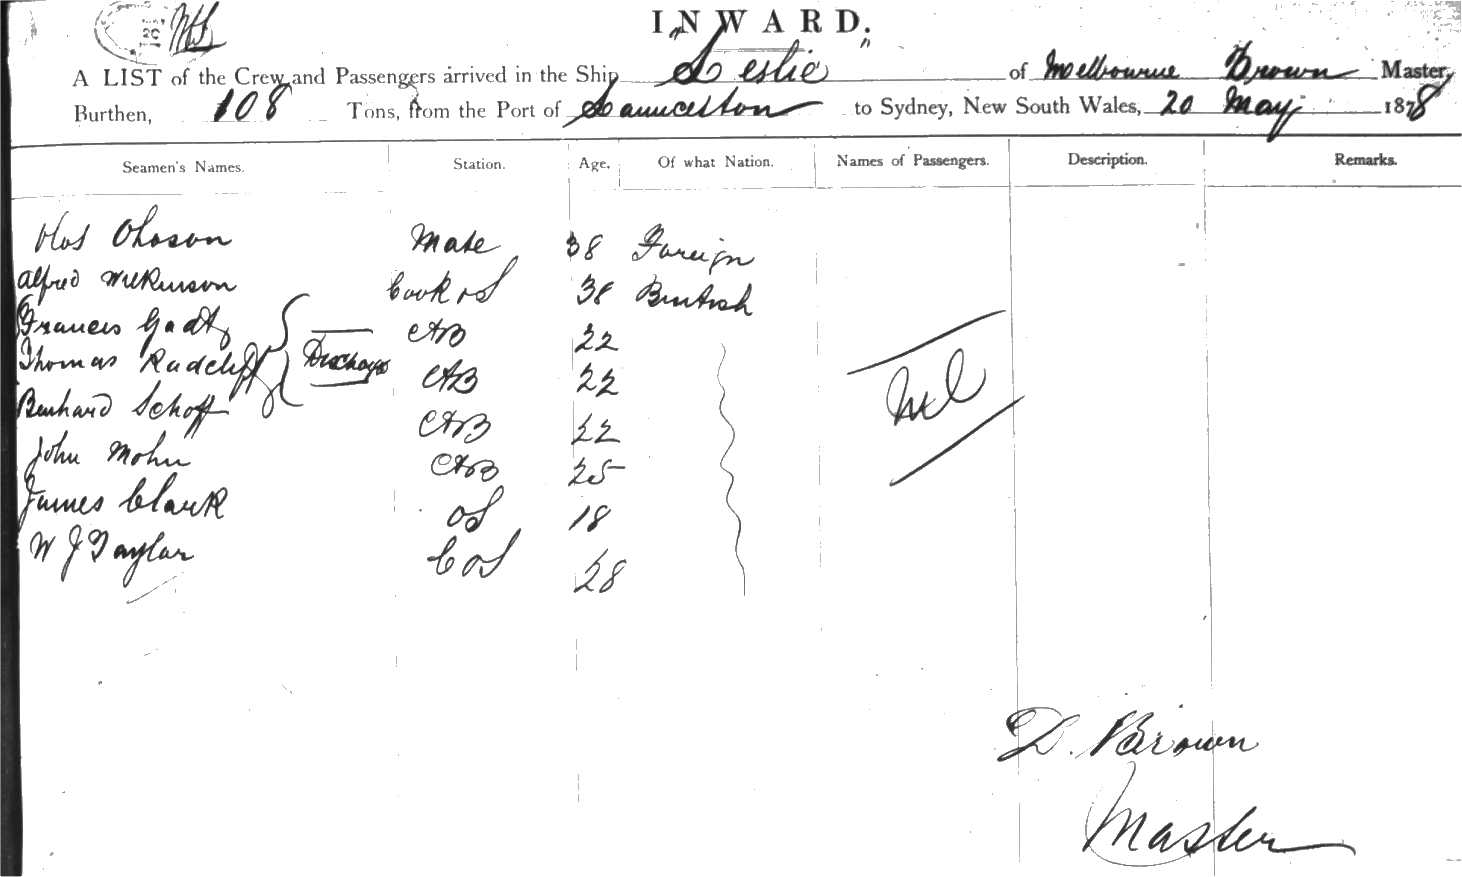 INWARD.
A LIST of the Crew and Passengers arrived in the Ship "Leslie" of Melbourne Brown Master,
Burthen, 108 Tons, from the Port of Launceston to Sydney, New South Wales, 20 May 1878
Seamen's Names. Station. Age. Of what Nation. Names of Passengers. Description. Remarks.
Mate 38 Foreign
Alfred Wilkinson Cook OS 38 British
Francis AB 22
Thomas Radcliff AB 22
AB 22
John Mohn AB 25
James Clark OS 18
W J Taylor C OS 28
D. Brown
Master